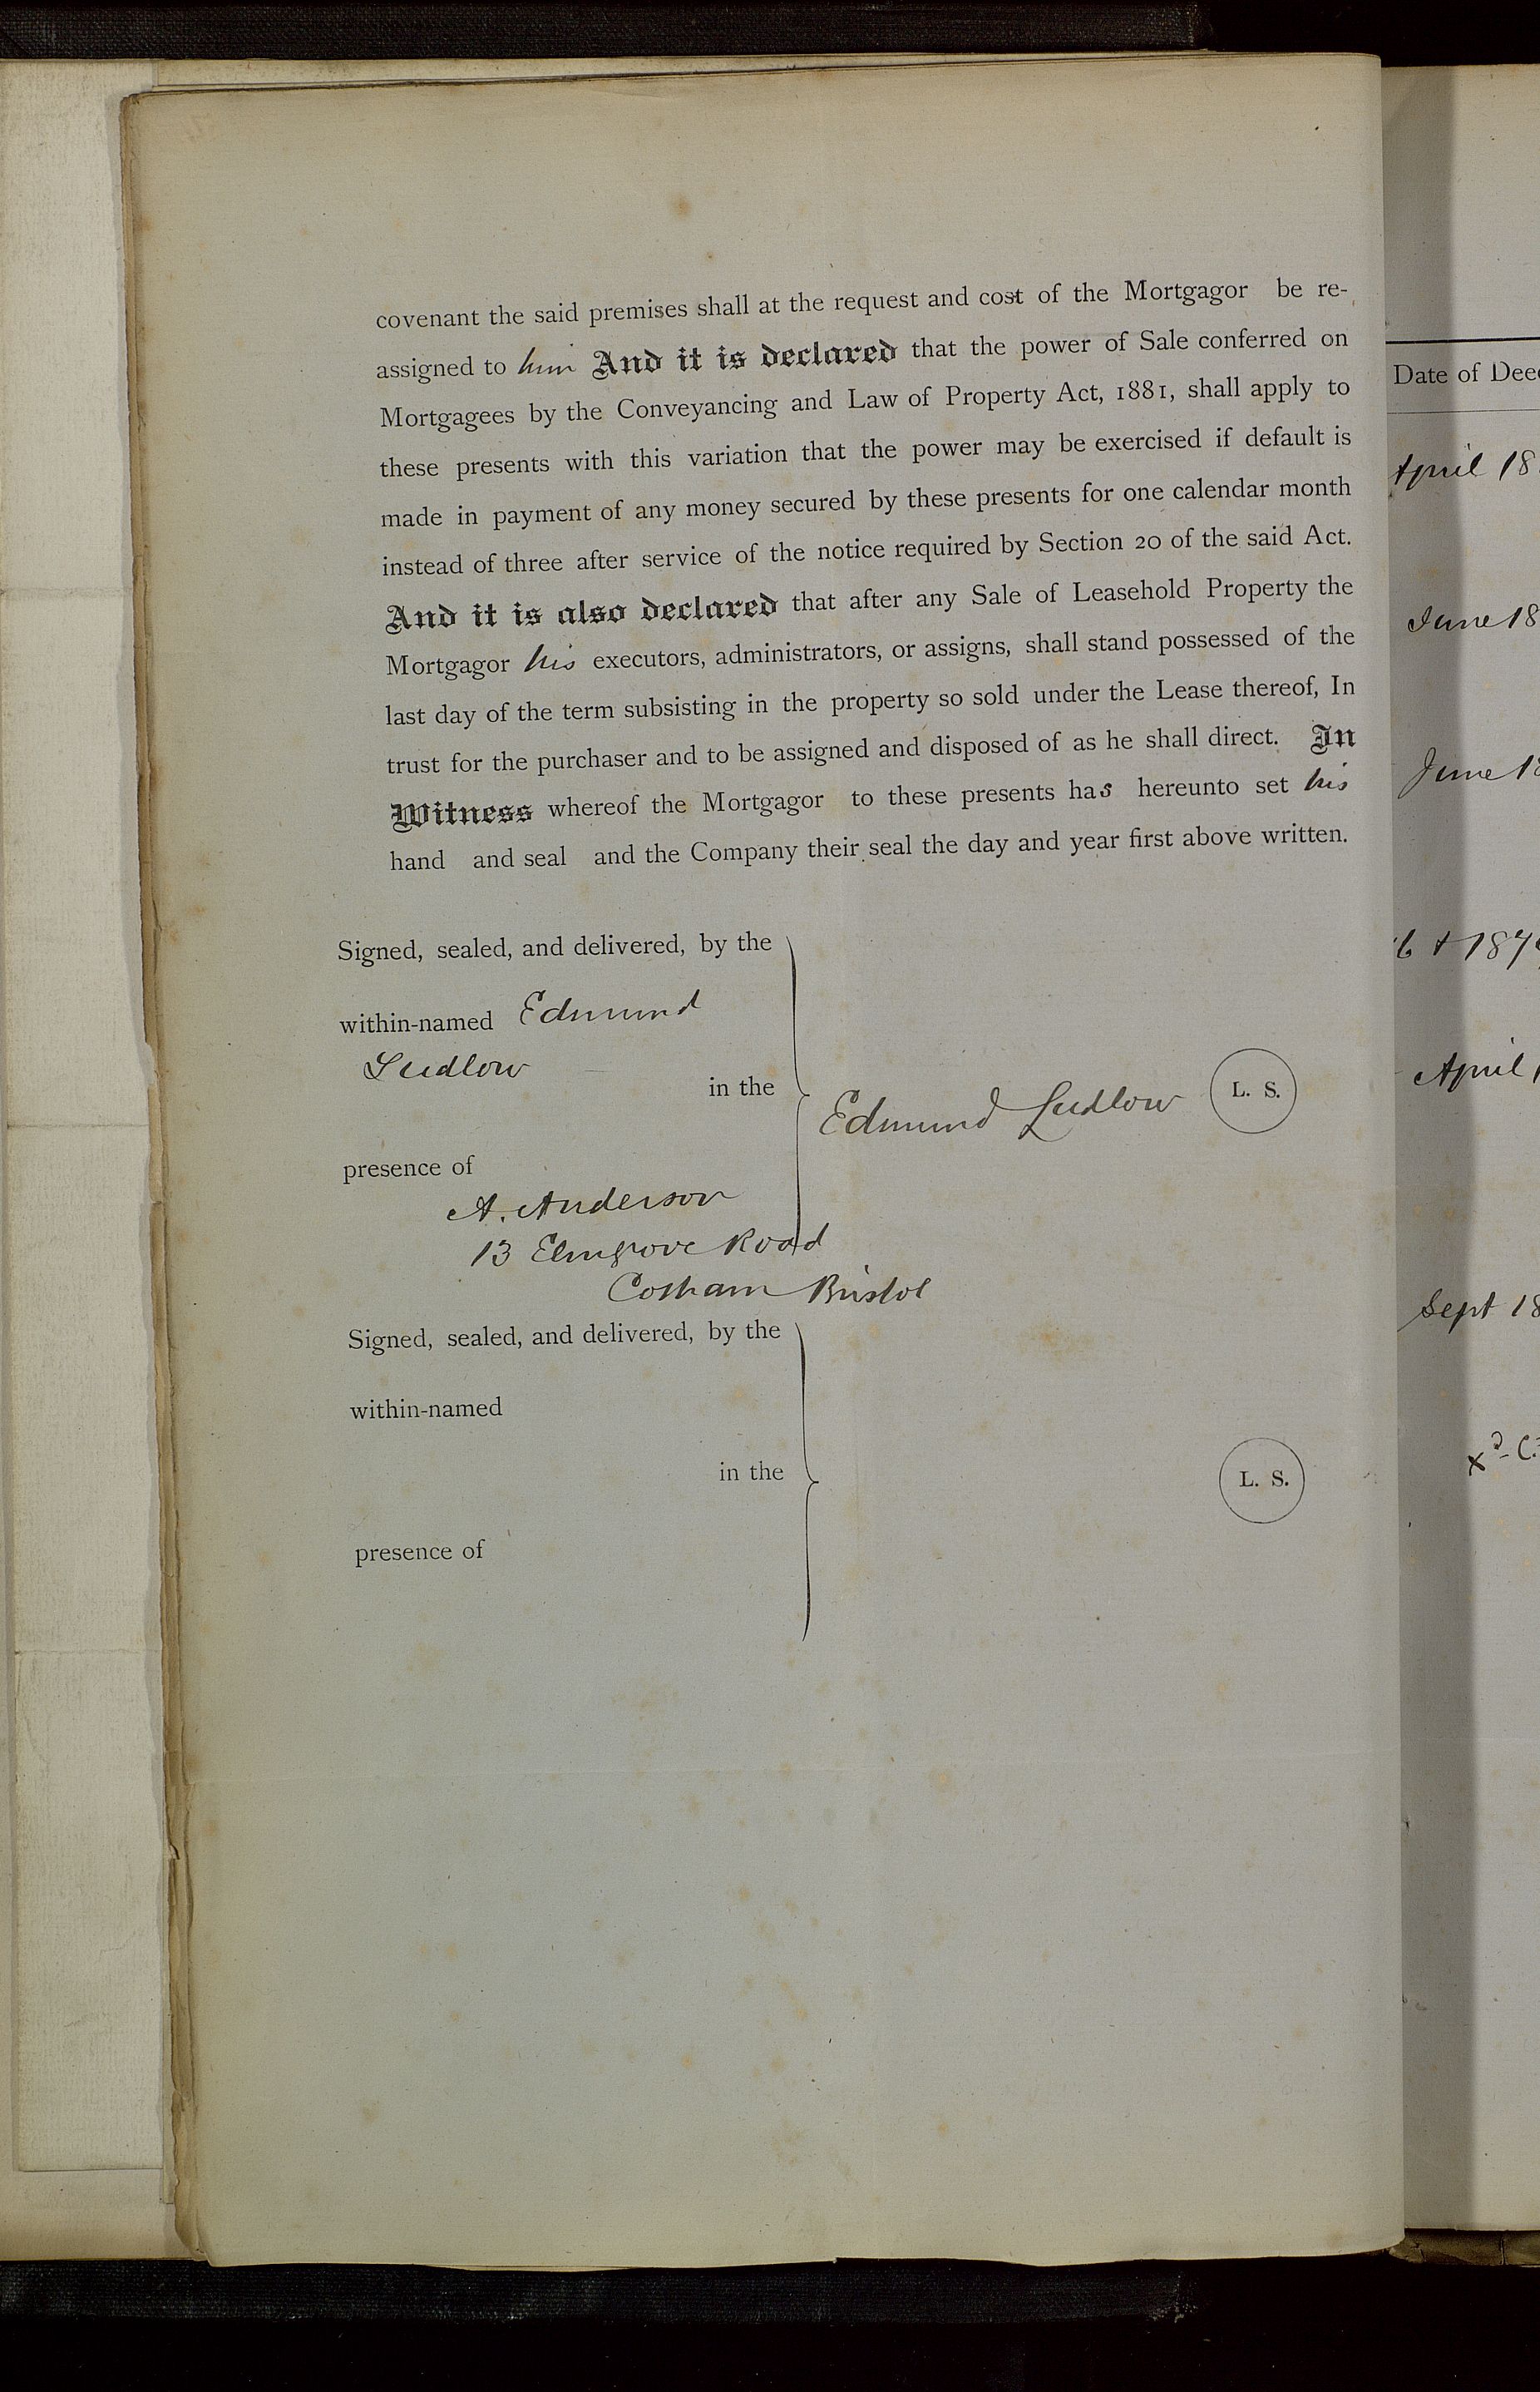 covenant the said premises shall at the request and cost of the Mortgagor be re-
assigned to him And it is declared that the power of Sale conferred on
Mortgagees by the Conveyancing and Law of Property Act, 1881, shall apply to
these presents with this variation that the power may be exercised if default is
made in payment of any money secured by these presents for one calendar month
instead of three after service of the notice required by Section 20 of the said Act.
And it is also declared that after any Sale of Leasehold Property the
Mortgagor his executors, administrators, or assigns, shall stand possessed of the
last day of the term subsisting in the property so sold under the Lease thereof, In
trust for the purchaser and to be assigned and disposed of as he shall direct. In
Witness whereof the Mortgagor to these presents has hereunto set his
hand and seal and the Company their seal the day and year first above written.
Signed, sealed, and delivered, by the
within-named Edmund
Ludlow
in the
Edmund Ludlow L. S.
presence of
A. Anderson
13 Elmgrove Road
Cotham Bristol
Signed, sealed, and delivered, by the
within-named
in the
L. S.
presence of
Date of
April 18
June 18
June 18
April
Sept 18